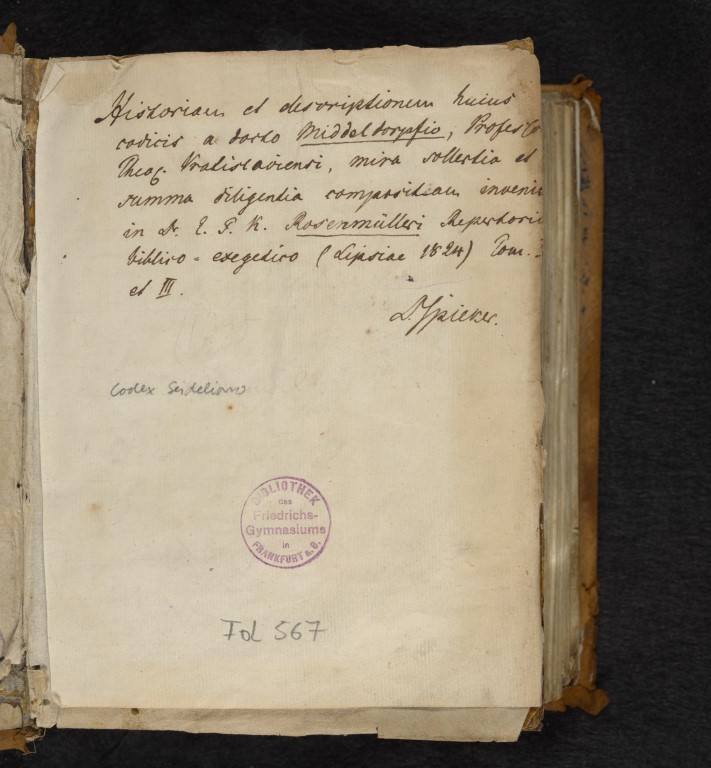 Historiam et descriptionem huius
codicis a docto Middeldorpfio, Professo
Theol. Vratislaviensi, mira sollertia et
summa diligentia compositam invenies
in Dr. E. F. K. Rosenmülleri Repertorio
biblico-exegetico (Lipsiae 1824) Tom.
et III.
D. Spieker.
Codex Seideliano
BIBLIOTHEK
des
Friedrichs-
Gymnasiums
in
FRANKFURT a. O.
Fol 567